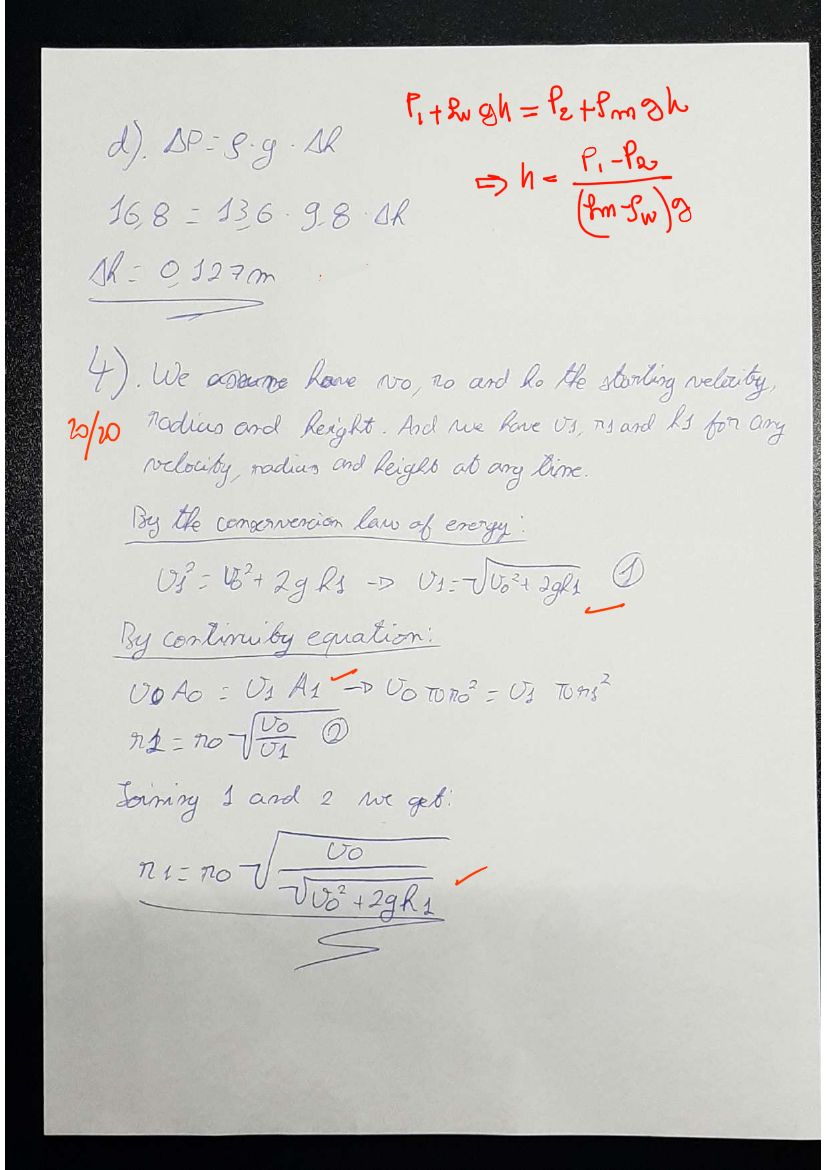 P₁ + ρw gh = P₂ + ρm gh
d). ΔP = ρ · g · Δh
⇒ h = (P₁ - P₂) / ((ρm - ρw)g)
16,8 = 13,6 · 9,8 · Δh
Δh = 0,127m
4). We assume have v0, r0 and h0 the starting velocity,
20/20 radius and height. And we have v1, r1 and h1 for any
velocity, radius and height at any time.
By the conservencion law of energy:
v1² = v0² + 2g h1 → v1 = √(v0² + 2gh1) ①
By continuiby equation:
v0 A0 = v1 A1 → v0 π r0² = v1 π r1²
r1 = r0 √(v0/v1) ②
Joining 1 and 2 we get:
r1 = r0 √(v0 / √(v0² + 2gh1))